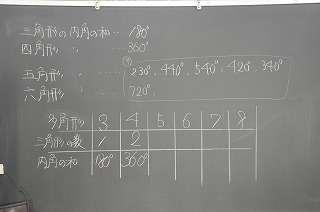 三角形の内角の和 … 180°
四角形 〃 … 360°
五角形 〃 … 230°, 440°, 540°, 420°, 340°
六角形 〃 … 720°,
多角形 3 4 5 6 7 8
三角形の数 1 2
内角の和 180° 360°